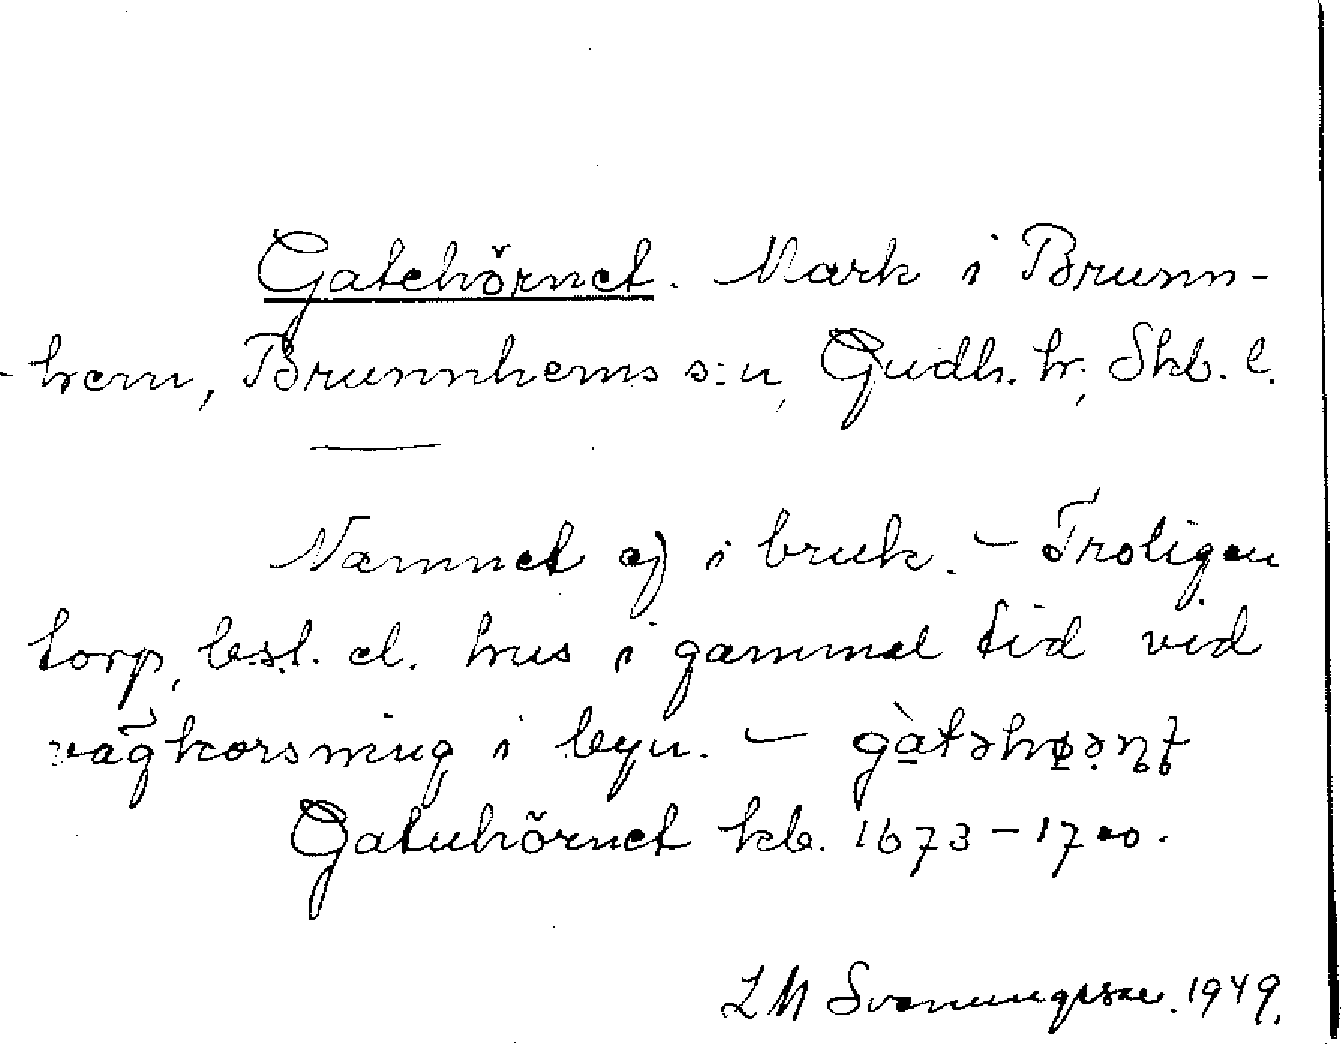 Gatehörnet. Mark i Brunn-
-hem, Brunnhems s:n, Gudh. hr, Skb. l.
Namnet ej i bruk. – Troligen
torp, best. el. hus i gammal tid vid
vägkorsning i byn. –
Gatuhörnet kb. 1673–1700.
L M Svenungsson. 1949.